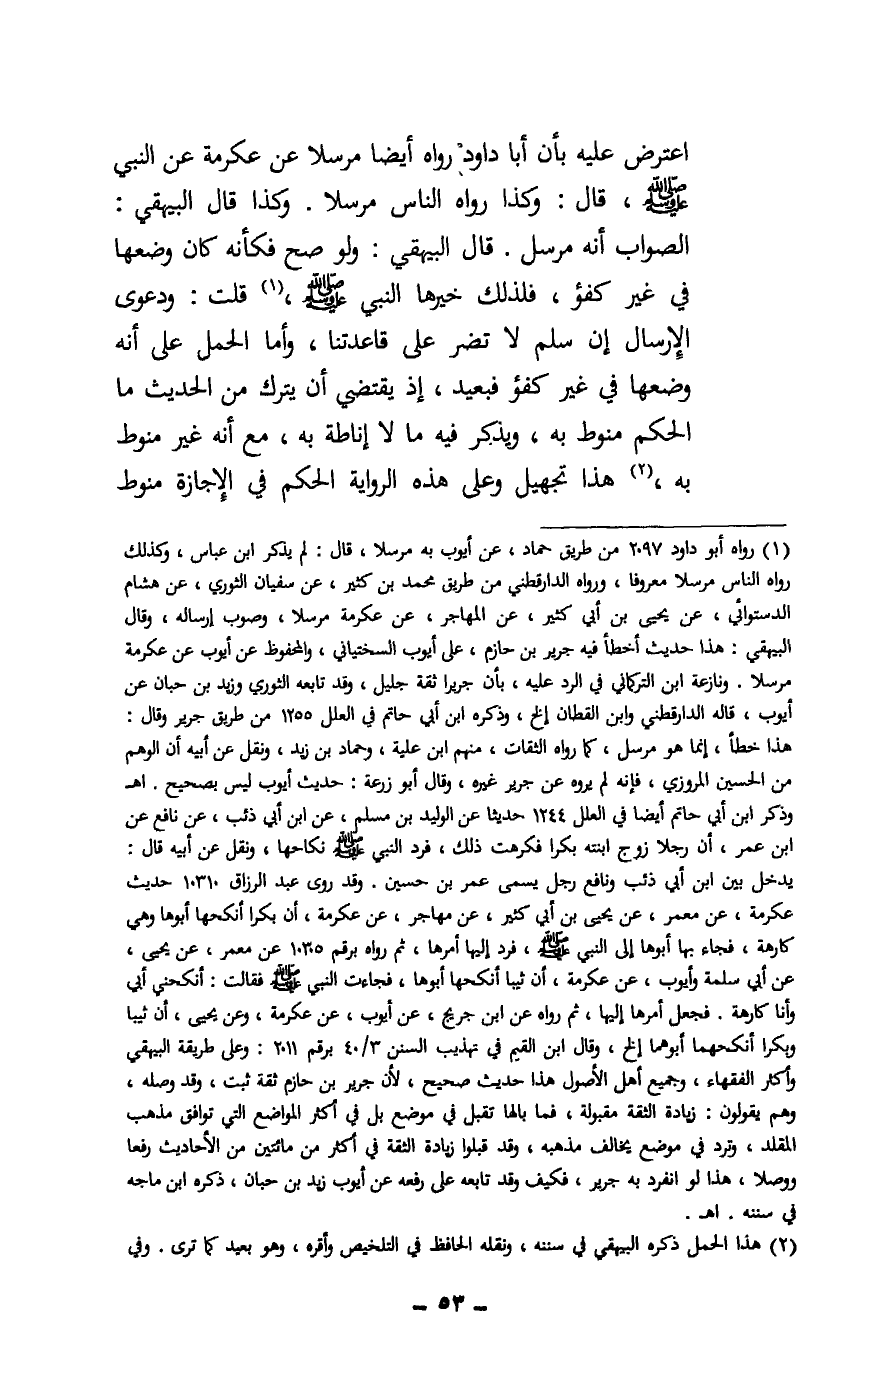 اعترض عليه بأن أبا داود رواه أيضا مرسلا عن عكرمة عن النبي
ﷺ ، قال : وكذا رواه الناس مرسلا . وكذا قال البيهقي :
الصواب أنه مرسل . قال البيهقي : ولو صح فكأنه كان وضعها
في غير كفؤ ، فلذلك خيرها النبي ﷺ ،(١) قلت : ودعوى
الإرسال إن سلم لا تضر على قاعدتنا ، وأما الحمل على أنه
وضعها في غير كفؤ فبعيد ، إذ يقتضي أن يترك من الحديث ما
الحكم منوط به ، ويذكر فيه ما لا إناطة به ، مع أنه غير منوط
به ،(٢) هذا تجهيل وعلى هذه الرواية الحكم في الإجازة منوط
(١) رواه أبو داود ٢٠٩٧ من طريق حماد ، عن أيوب به مرسلا ، قال : لم يذكر ابن عباس ، وكذلك
رواه الناس مرسلا معروفا ، ورواه الدارقطني من طريق محمد بن كثير ، عن سفيان الثوري ، عن هشام
الدستوائي ، عن يحيى بن أبي كثير ، عن المهاجر ، عن عكرمة مرسلا ، وصوب إرساله ، وقال
البيهقي : هذا حديث أخطأ فيه جرير بن حازم ، على أيوب السختياني ، والمحفوظ عن أيوب عن عكرمة
مرسلا . ونازعة ابن التركماني في الرد عليه ، بأن جريرا ثقة جليل ، وقد تابعه الثوري وزيد بن حبان عن
أيوب ، قاله الدارقطني وابن القطان إلخ ، وذكره ابن أبي حاتم في العلل ١٢٥٥ من طريق جرير وقال :
هذا خطأ ، إنما هو مرسل ، كما رواه الثقات ، منهم ابن علية ، وحماد بن زيد ، ونقل عن أبيه أن الوهم
من الحسين المروزي ، فإنه لم يروه عن جرير غيره ، وقال أبو زرعة : حديث أيوب ليس بصحيح . اهـ
وذكر ابن أبي حاتم أيضا في العلل ١٢٤٤ حديثا عن الوليد بن مسلم ، عن ابن أبي ذئب ، عن نافع عن
ابن عمر ، أن رجلا زوج ابنته بكرا فكرهت ذلك ، فرد النبي ﷺ نكاحها ، ونقل عن أبيه قال :
يدخل بين ابن أبي ذئب ونافع رجل يسمى عمر بن حسين . وقد روى عبد الرزاق ١٠٣١٠ حديث
عكرمة ، عن معمر ، عن يحيى بن أبي كثير ، عن مهاجر ، عن عكرمة ، أن بكرا أنكحها أبوها وهي
كارهة ، فجاء بها أبوها إلى النبي ﷺ ، فرد إليها أمرها ، ثم رواه برقم ١٠٣٠٥ عن معمر ، عن يحيى ،
عن أبي سلمة وأيوب ، عن عكرمة ، أن ثيبا أنكحها أبوها ، فجاءت النبي ﷺ فقالت : أنكحني أبي
وأنا كارهة . فجعل أمرها إليها ، ثم رواه عن ابن جريج ، عن أيوب ، عن عكرمة ، وعن يحيى ، أن ثيبا
وبكرا أنكحهما أبوهما إلخ ، وقال ابن القيم في تهذيب السنن ٤٠/٣ برقم ٢٠١١ : وعلى طريقة البيهقي
وأكثر الفقهاء ، وجميع أهل الأصول هذا حديث صحيح ، لأن جرير بن حازم ثقة ثبت ، وقد وصله ،
وهم يقولون : زيادة الثقة مقبولة ، فما بالها تقبل في موضع بل في أكثر المواضع التي توافق مذهب
المقلد ، وترد في موضع يخالف مذهبه ، وقد قبلوا زيادة الثقة في أكثر من مائتين من الأحاديث رفعا
ووصلا ، هذا لو انفرد به جرير ، فكيف وقد تابعه على رفعه عن أيوب زيد بن حبان ، ذكره ابن ماجه
في سننه . اهـ .
(٢) هذا الحمل ذكره البيهقي في سننه ، ونقله الحافظ في التلخيص وأقره ، وهو بعيد كما ترى . وفي
ـ ٥٣ ـ